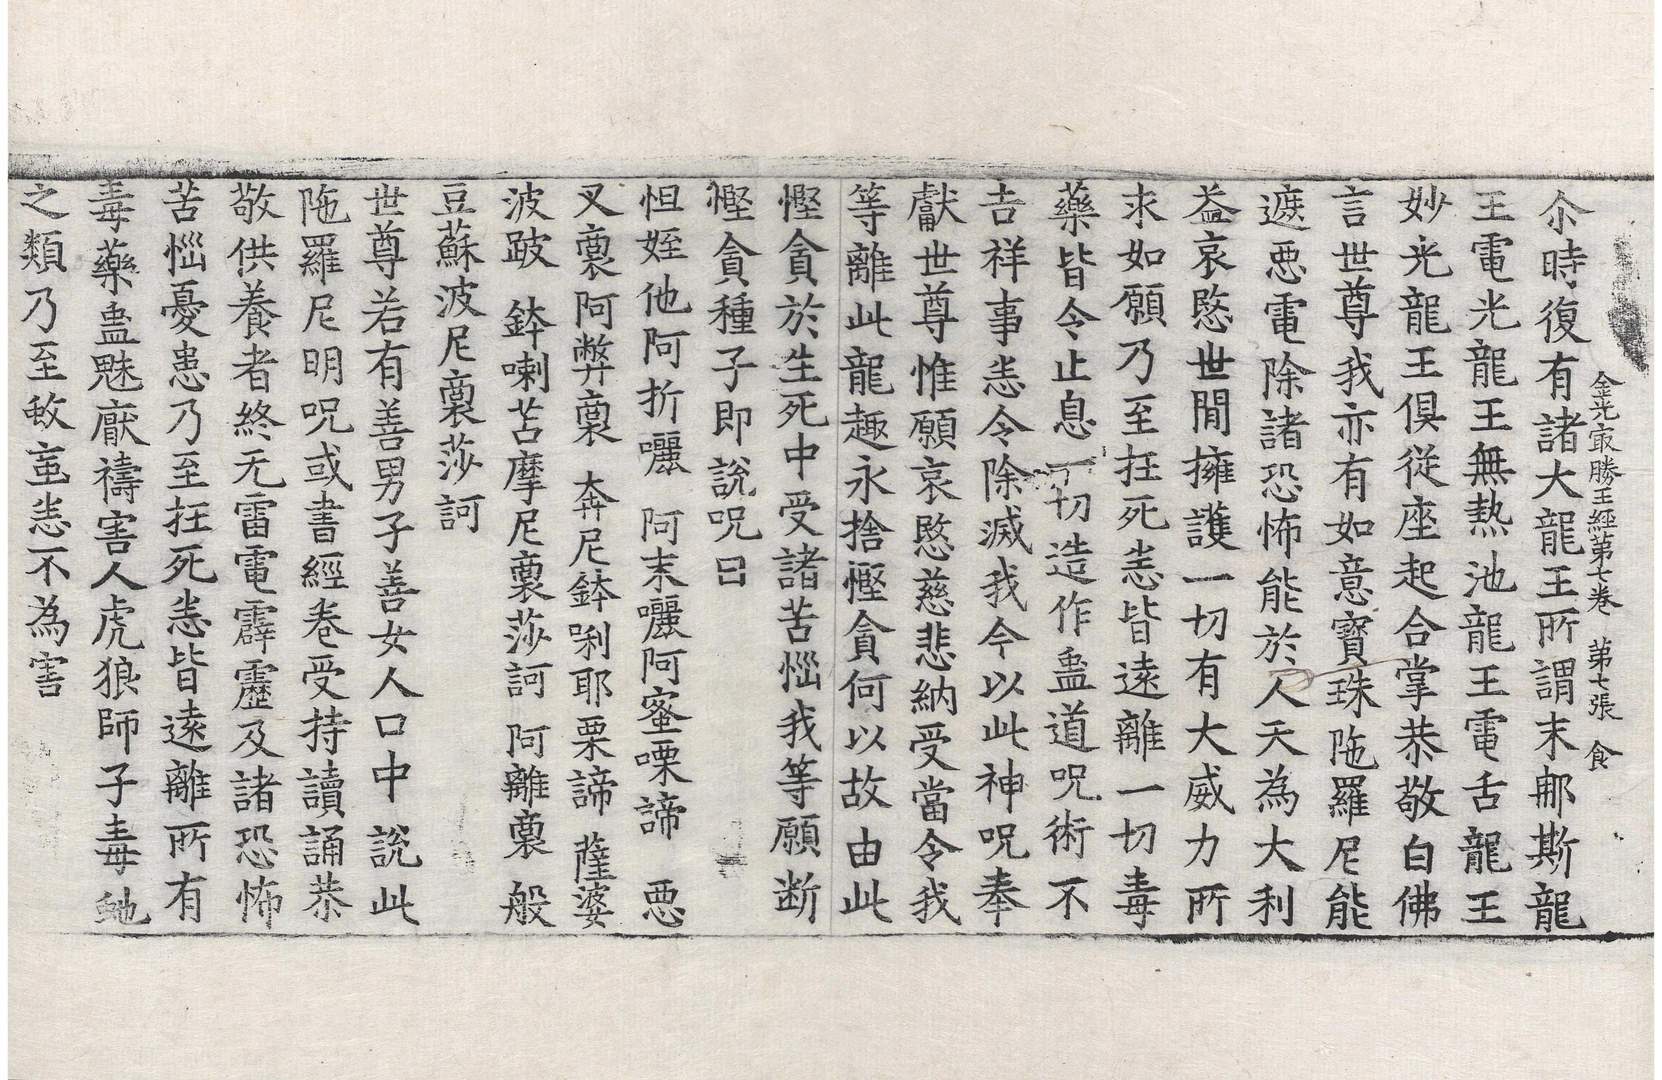 尒時復有諸大龍王所謂末那斯龍
金光㝡勝王經第七卷　第七張　食
王電光龍王無熱池龍王電舌龍王
妙光龍王俱從座起合掌恭敬白佛
言世尊我亦有如意寶珠陁羅尼能
遮惡電除諸恐怖能於人天為大利
益哀愍世閒擁護一切有大威力所
求如願乃至抂死恙皆遠離一切毒
藥皆令止息一切造作蠱道呪術不
吉祥事恙令除滅我今以此神呪奉
獻世尊惟願哀愍慈悲納受當令我
等離此龍趣永捨慳貪何以故由此
慳貪於生死中受諸苦惱我等願断
慳貪種子即說呪曰
怛姪他阿折囇　阿末囇阿蜜㗚諦　惡
叉裛阿弊裛　奔尼鉢唎耶栗諦　薩婆
波跛　鉢喇苫摩尼裛莎訶　阿離裛　般
豆蘇波尼裛莎訶
世尊若有善男子善女人口中說此
陁羅尼明呪或書經卷受持讀誦恭
敬供養者終无雷電霹靂及諸恐怖
苦惱憂患乃至抂死恙皆遠離所有
毒藥蠱魅厭禱害人虎狼師子毒虵
之類乃至蚊䖟恙不為害